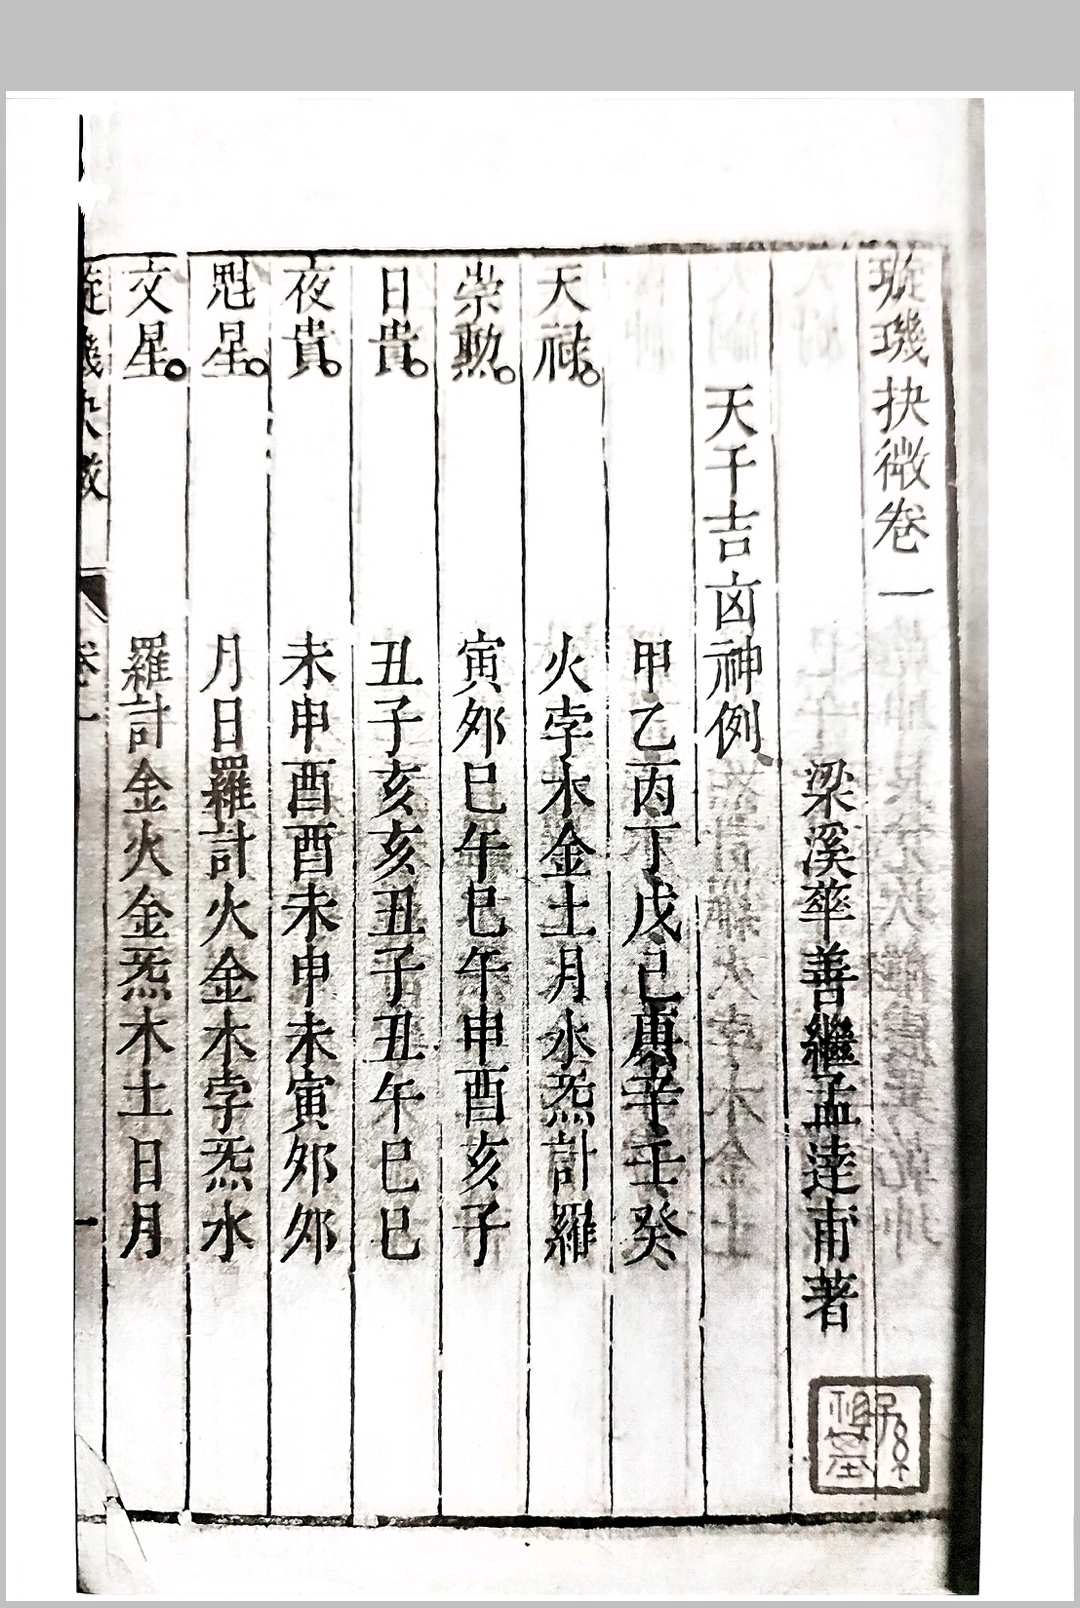 璇璣抉微卷一
梁溪華善繼孟達甫著
天干吉凶神例
甲乙丙丁戊己庚辛壬癸
天祿。火孛木金土月水炁計羅
崇勲。寅夘巳午巳午申酉亥子
日貴。丑子亥亥丑子丑午巳巳
夜貴。未申酉酉未申未寅夘夘
魁星。月日羅計火金木孛炁水
文星。羅計金火金炁木土日月
璇璣抉微
卷一
一